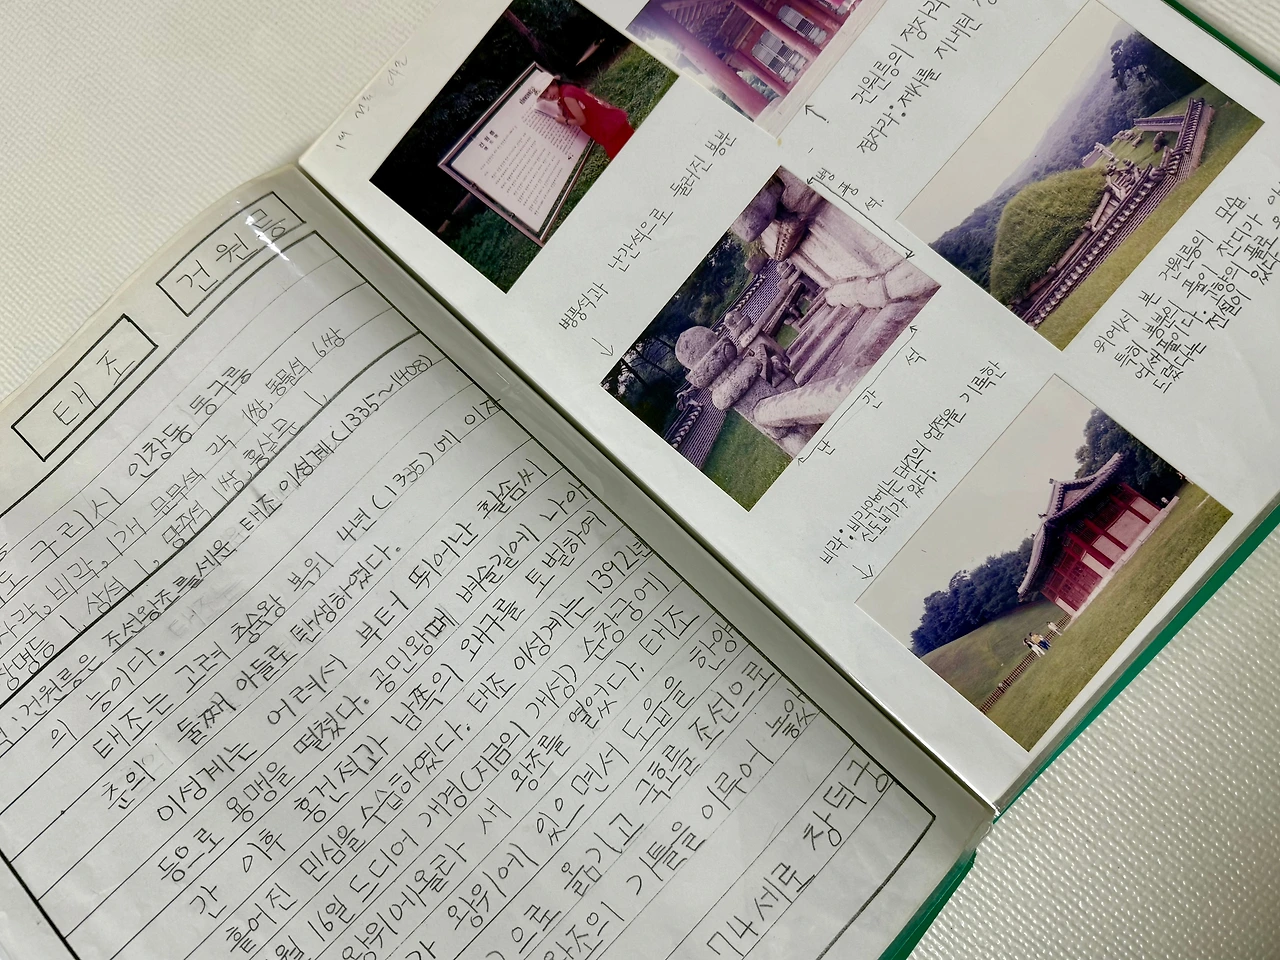 건원릉
태조
구리시 인창동 동구릉
비각, 1개 문무석 각 1쌍, 동물석 6쌍
장명등 1, 상석 1, 망주석 1쌍, 홍살문 1
건원릉은 조선왕조를 세운 태조 이성계(1335~1408)
의 능이다.
태조는 고려 충숙왕 복위 4년(1335)에 이자
춘의 둘째 아들로 탄생하였다.
이성계는 어려서 부터 뛰어난 활솜씨
등으로 용맹을 떨쳤다. 공민왕때 벼슬길에 나아
간 이후 홍건적과 남쪽의 왜구를 토벌하여
흩어진 민심을 수습하였다. 태조 이성계는 1392년
월 16일 드디어 개경(지금의 개성) 수창궁에
왕위에올라 새 왕조를 열었다. 태조
가 왕위에 있으면서 도읍을 한양
으로 옮기고 국호를 조선으로
왕조의 기틀을 이루어 놓았
74세로 창덕궁
건원릉의 정자각
정자각: 제사를 지내던
병풍석과 난간석으로 둘러진 봉분
병풍석
난간석
위에서 본 건원릉의 모습.
특히 봉분의 풀이 잔디가
억새풀이다.
드렸다는 전설이 있다
비각: 비각안에는 태조의 업적을 기록한
신도비가 있다.